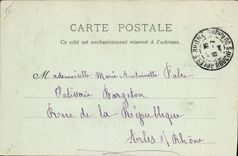 CARTE POSTALE
Ce côté est exclusivement réservé à l'adresse.
Mademoiselle Marie-Antoinette Pabre
Patisserie Bargeton
Rue de la République
Arles s/ Rhône